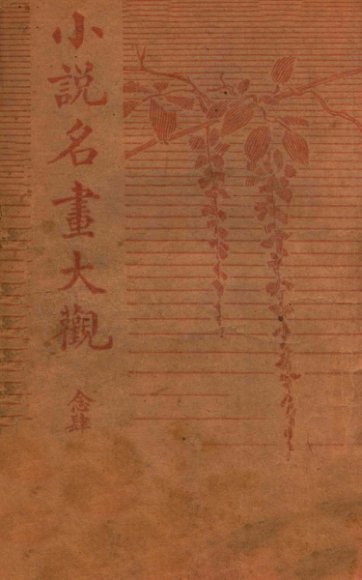 小説名畫大觀
念肆